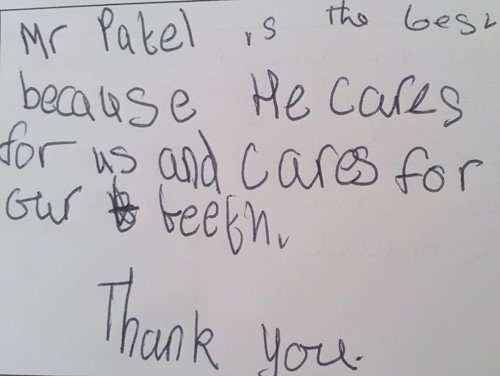 Mr Patel is the best
because He cares
for us and cares for
our teeth.
Thank you.